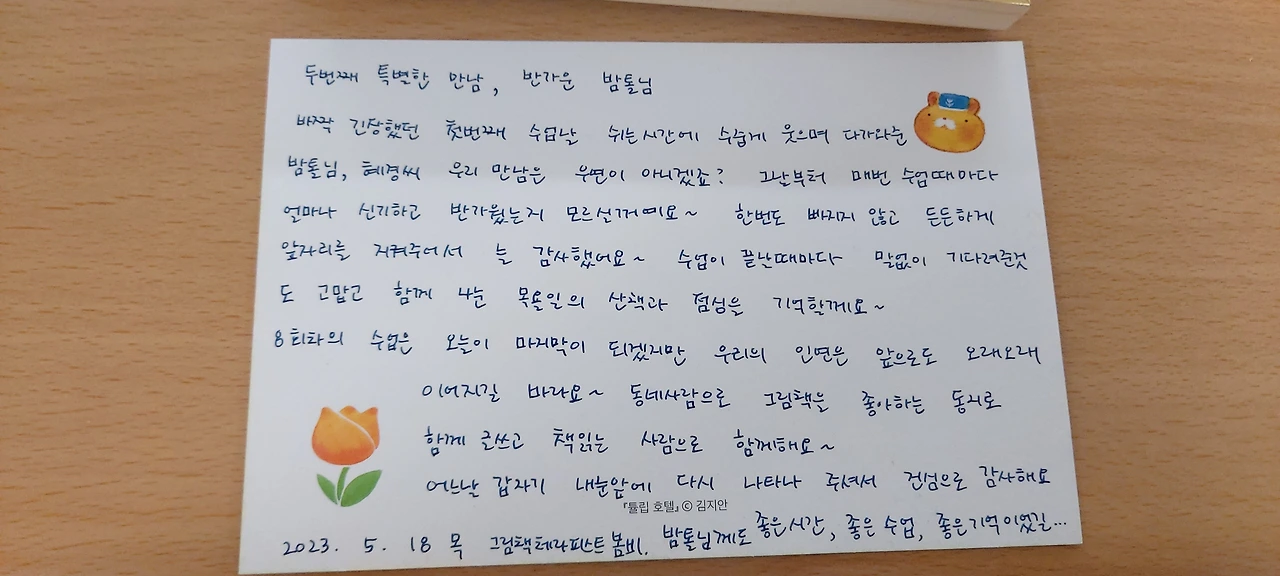 두번째 특별한 만남, 반가운 밤톨님
바짝 긴장했던 첫번째 수업날 쉬는시간에 수줍게 웃으며 다가와준
밤톨님, 혜경씨 우리 만남은 우연이 아니겠죠? 그날부터 매번 수업때마다
얼마나 신기하고 반가웠는지 모르실꺼예요~ 한번도 빠지지 않고 든든하게
앞자리를 지켜주어서 늘 감사했어요~ 수업이 끝난때마다 말없이 기다려준것
도 고맙고 함께 나눈 목요일의 산책과 점심을 기억할께요~
8회차의 수업은 오늘이 마지막이 되겠지만 우리의 인연은 앞으로도 오래오래
이어지길 바라요~ 동네사람으로 그림책을 좋아하는 동지로
함께 글쓰고 책읽는 사람으로 함께해요~
어느날 갑자기 내눈앞에 다시 나타나 주셔서 진심으로 감사해요
『튤립 호텔』 © 김지안
2023. 5. 18 목 그림책테라피스트 봄비. 밤톨님께도 좋은시간, 좋은 수업, 좋은기억이었길...